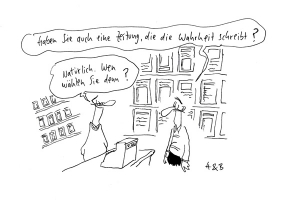 Haben Sie auch eine Zeitung, die die Wahrheit schreibt?
Natürlich. Wen
wählen Sie denn?